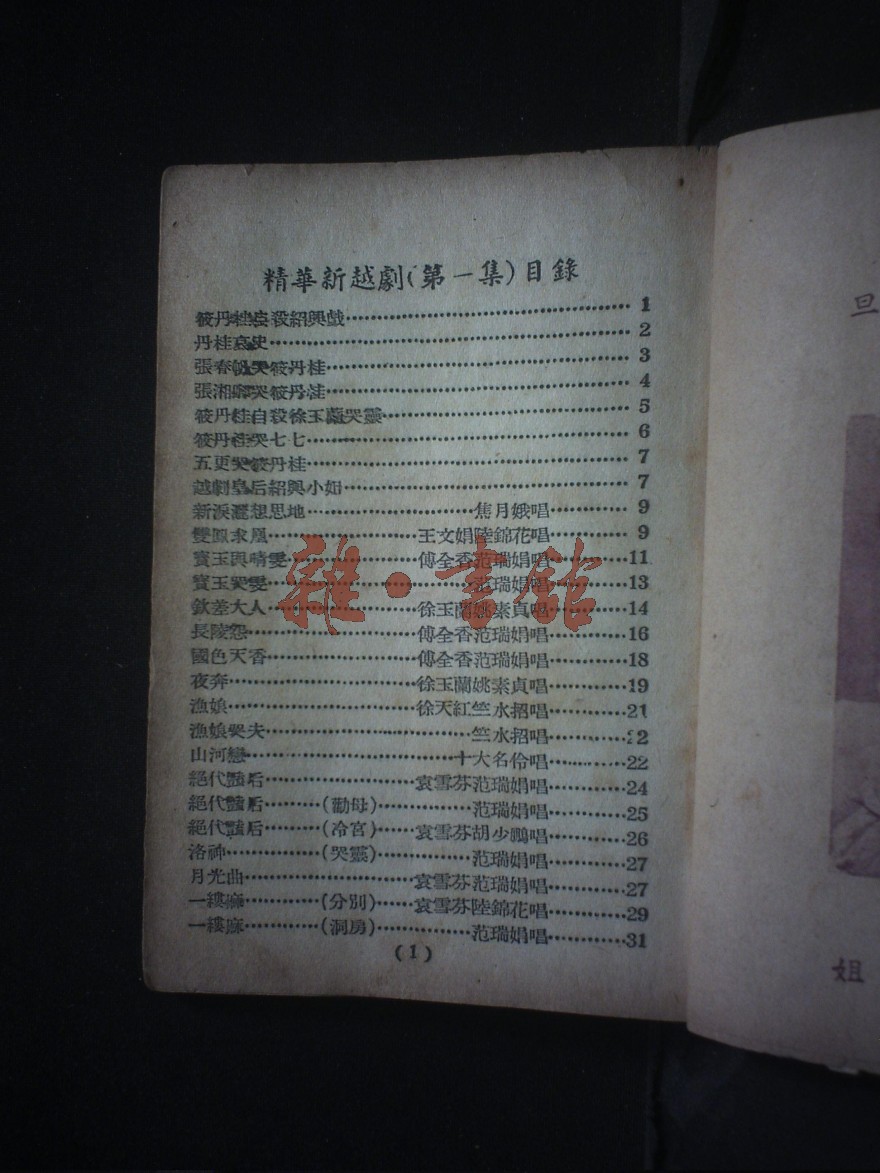 精華新越劇(第一集)目錄
筱丹桂殺紹興戲 1
丹桂哀史 2
張春帆哭筱丹桂 3
張湘卿哭筱丹桂 4
筱丹桂自殺徐玉蘭哭靈 5
筱丹桂哭七七 6
五更哭筱丹桂 7
越劇皇后紹興小姐 7
新淚灑想思地 焦月娥唱 9
雙鳳求凰 王文娟陸錦花唱 9
寶玉與晴雯 傅全香范瑞娟唱 11
寶玉哭雯 范瑞娟唱 13
欽差大人 徐玉蘭姚素貞唱 14
長陵怨 傅全香范瑞娟唱 16
國色天香 傅全香范瑞娟唱 18
夜奔 徐玉蘭姚素貞唱 19
漁娘 徐天紅竺水招唱 21
漁娘哭夫 竺水招唱 22
山河戀 十大名伶唱 22
絕代豔后 袁雪芬范瑞娟唱 24
絕代豔后 (勸母) 范瑞娟唱 25
絕代豔后 (冷宮) 袁雪芬胡少鵬唱 26
洛神 (哭靈) 范瑞娟唱 27
月光曲 袁雪芬范瑞娟唱 27
一縷麻 (分別) 袁雪芬陸錦花唱 29
一縷麻 (洞房) 范瑞娟唱 31
(1)
旦
姐
雜·書館